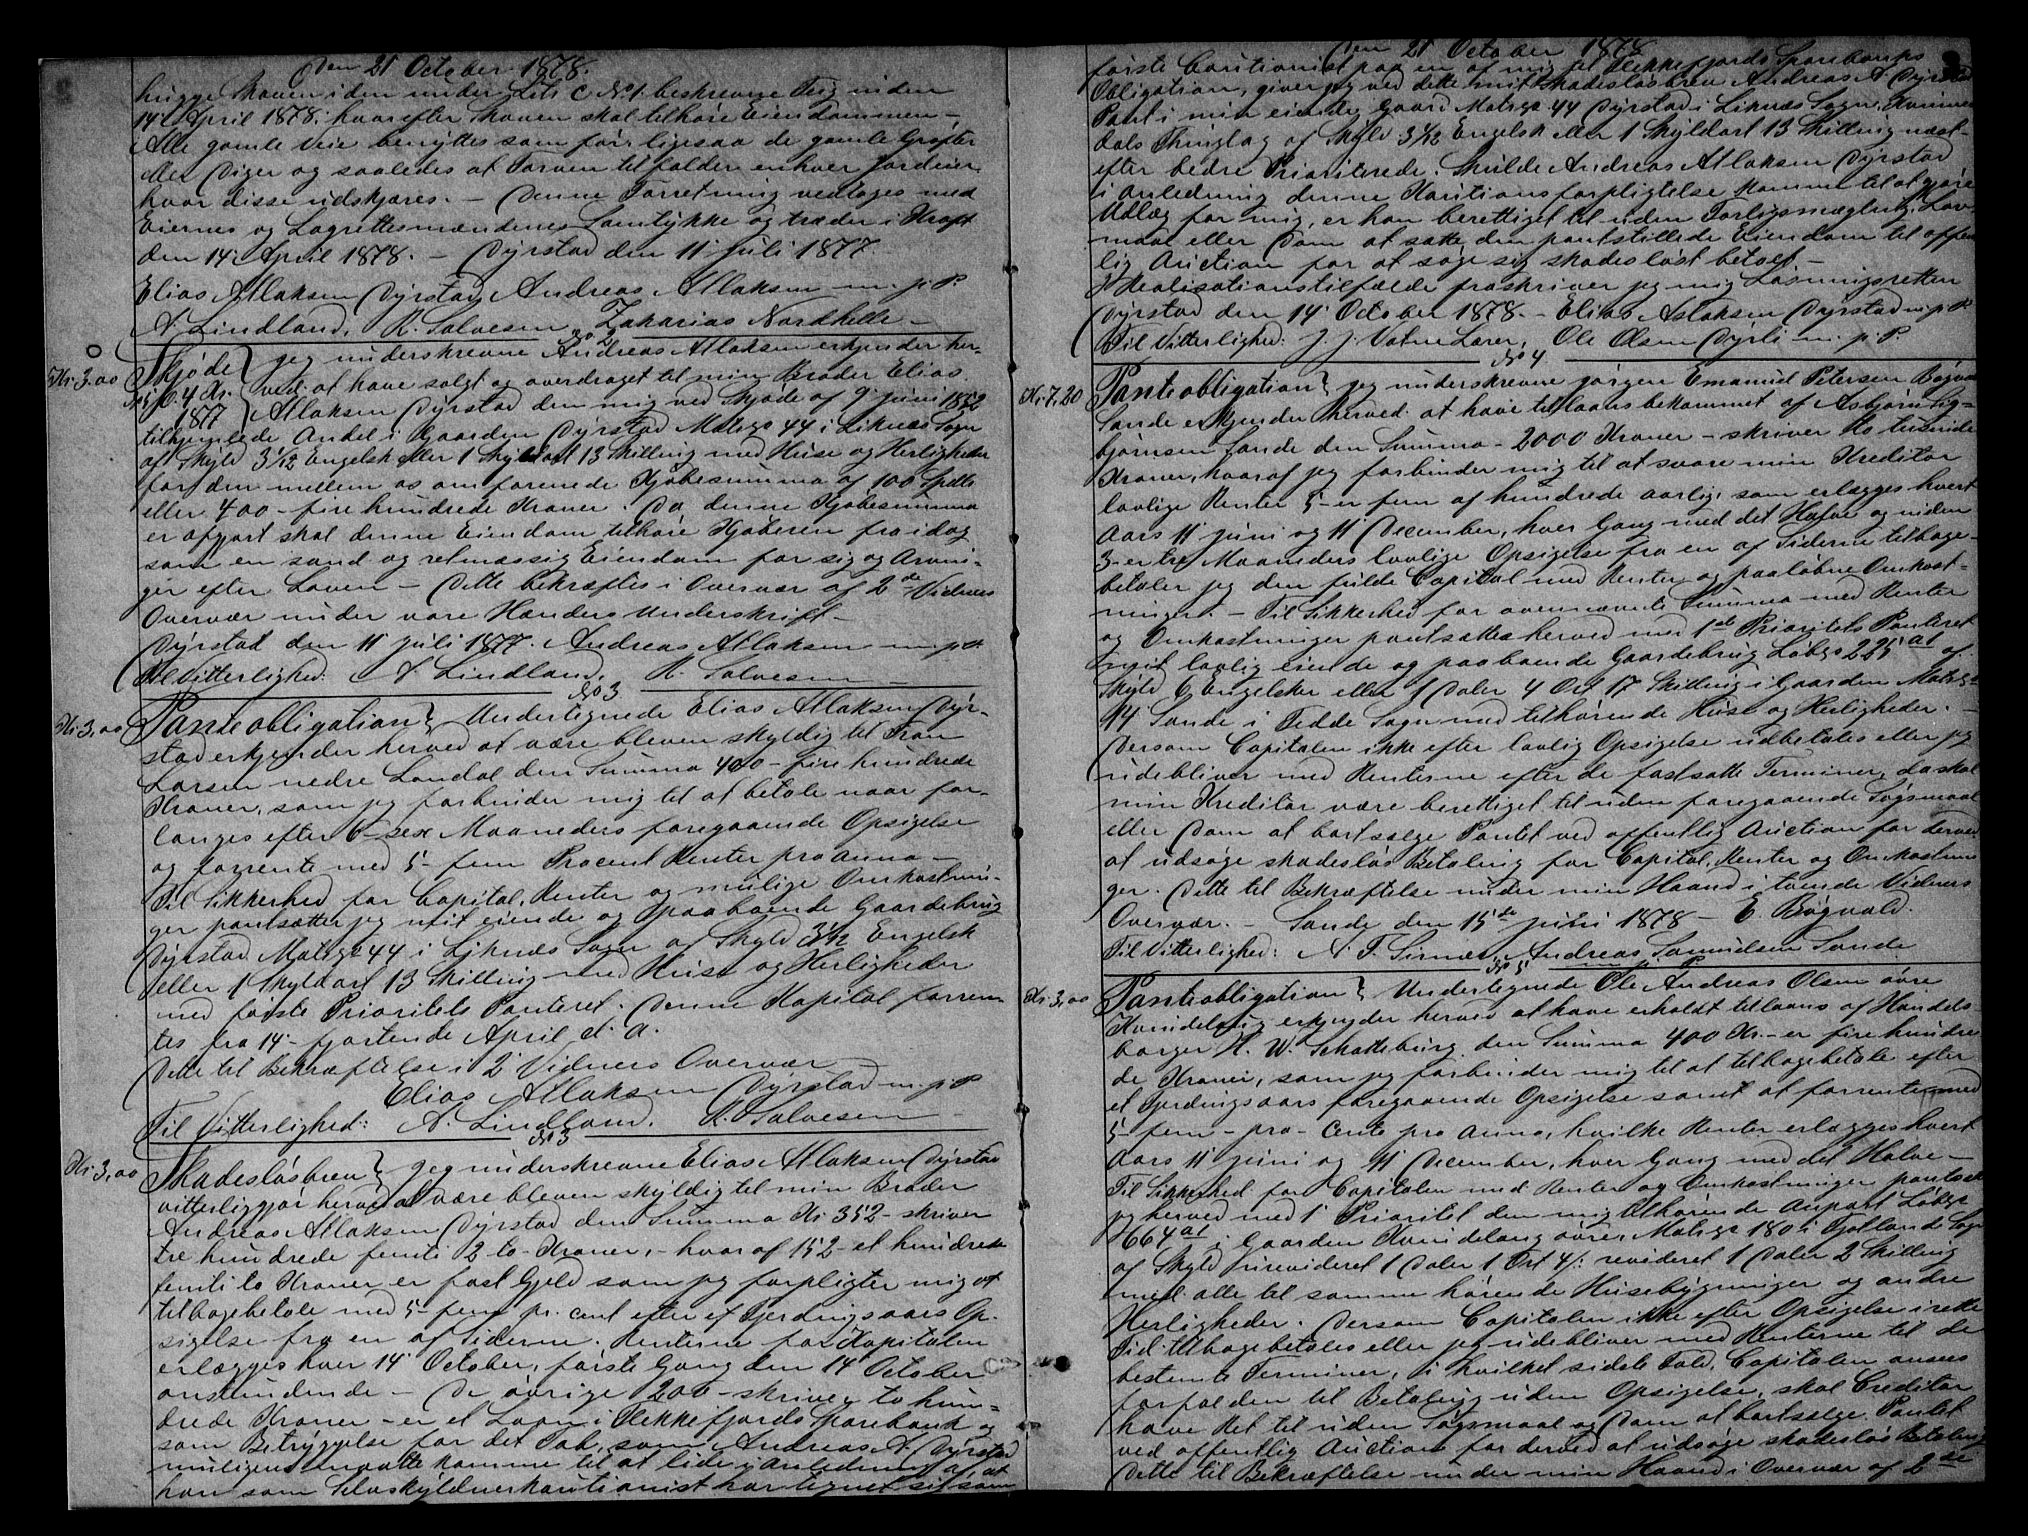 Den 21 October 1878.
hugge Skoven i den under Litr C No 1 beskrevne Teig inden
14 April 1878, hvorefter Skoven skal tilhøre Eiendommen –
Alle gamle Veie benyttes som før, ligesaa de gamle Grøfter
der Diger og saaledes at Torven tilfalder enhver Jordeier
hvor disse udskjæres. – Denne Forretning vedtoges med
Eiernes og Lagrettesmændenes Samtykke og træder i Kraft
den 14 April 1878. – Dyrstad den 11 juli 1877.
Elias Atlaksen Dyrstad, Andreas Atlaksen m. p. P.
A. Lindland, R. Salvesen, Zakarias Nordhelle –
No 2
Kr. 3,00
Skjøde } jeg underskrevne Andreas Atlaksen erkjender her-
4 Kr. ved at have solgt og overdraget til min Broder Elias
1877 } Atlaksen Dyrstad den mig ved Skjøde af 9 juni 1852
tilhjemlede Andel i Gaarden Dyrstad Matrgo 44 i Liknæs Sogn
af Skyld 3 1/12 Engelsk eller 1 Skyldort 13 Skilling med Huse og Herligheder
for den mellem os omforenede Kjøbesumma af 100 Spdlr
eller 400 – fire hundrede Kroner. Da denne Kjøbesumma
er afgjort skal denne Eiendom tilhøre Kjøberen fra idag
som en sand og retmæssig Eiendom for sig og Arvin-
ger efter Loven – Dette bekræftes i Overvær af 2de Vidners
Overvær under vore Hænders Underskrift –
Dyrstad den 11 juli 1877. Andreas Atlaksen m. p. P.
Til Vitterlighed: A. Lindland, R. Salvesen –
No 3
Kr. 3,00
Panteobligation } Undertegnede Elias Atlaksen Dyr-
stad erkjender herved at være bleven skyldig til Fran
Larsen nedre Londal den Summa 400 – fire hundrede
Kroner, som jeg forbinder mig til at betale naar for-
langes efter 6 – sex Maaneders foregaaende Opsigelse
og forrente med 5 – fem Procent Renter pro anno –
Til Sikkerhed for Capital, Renter og mulige Omkostnin-
ger pantsætter jeg mit eiende og paaboende Gaardebrug
Dyrstad Matrgo 44 i Liknæs Sogn af Skyld 3 1/12 Engelsk
eller 1 Skyldort 13 Skilling med Huse og Herligheder
med første Prioritets Panteret. Denne Kapital forren-
tes fra 14 – fjortende April d. A.
Dette til Bekræftelse i 2 Vidners Overvær –
Elias Atlaksen Dyrstad m. p. P.
Til Vitterlighed: A. Lindland, R. Salvesen –
No 3
Kr. 3,00
Skadesløsbrev } Jeg underskrevne Elias Atlaksen Dyrstad
vitterliggjør herved at være bleven skyldig til min Broder
Andreas Atlaksen Dyrstad den Summa Kr 352 – skriver
tre hundrede femti 2 to – Kroner, – hvoraf 152 – et hundrede
femti to Kroner er fast Gjeld som jeg forpligter mig at
tilbagebetale med 5 – fem pr. cent efter et Fjerdingsaars Op-
sigelse fra en af Siderne. Renterne for Kapitalen
erlægges hver 14 October, første Gang den 14 October
anstundende – De øvrige 200 – skriver to hun-
drede Kroner – er et Laan i Flekkefjords Sparebank og
som Betryggelse for det Tab, som Andreas A. Dyrstad
muligens maatte komme til at lide i Anledning af, at
han som Selvskyldnerkautionist har tegnet sig som
Den 21 October 1878
første Cautionist paa en af mig til Flekkefjords Sparebanks
Obligation, giver jeg ved dette mit Skadesløsbrev Andreas A. Dyrstad
Pant i min eiende Gaard Matrgo 44 Dyrstad i Liknæs Sogn, Kvines-
dals Thinglag af Skyld 3 1/12 Engelsk eller 1 Skyldort 13 Skilling næst-
efter bedre Prioriterede. Skulde Andreas Atlaksen Dyrstad
i Anledning denne Kautionsforpligtelse komme til at gjøre
Udlæg for mig, er han berettiget til uden Forligsmægling, Lov-
maal eller Dom at sætte den pantstillede Eiendom til offent-
lig Auction for at søge sig skadesløst betalt –
I Realisationstilfælde fraskriver jeg mig Løsningsretten
Dyrstad den 14 October 1878. – Elias Atlaksen Dyrstad m. p. P.
Til Vitterlighed: J. J. Vatne Lærer, Ole Olsen Dyrli m. p. P.
No 4
Kr. 7,20
Panteobligation } jeg underskrevne Jørgen Emanuel Petersen Bøgvald
Sande erkjender herved at have tillaans bekommet af Asbjørn Sig-
bjørnsen Sande den Summa – 2000 Kroner – skriver to tusinde
Kroner, hvoraf jeg forbinder mig til at svare min Kreditor
lovlige Renter 5 – er fem af hundrede aarlig, som erlægges hvert
Aars 11 juni og 11 December, hver Gang med det Halve og inden
3 – er tre Maaneders lovlige Opsigelse fra en af Siderne tilbage-
betaler jeg den fulde Capital med Renter og paaløbne Omkost-
ninger. – Til Sikkerhed for ovennævnte Summa med Renter
og Omkostninger pantsættes herved med 1ste Prioritets Panteret
mit lovlig eiende og paaboende Gaardebrug Løbgo 225 a1 af
Skyld 6 Engelsker eller 1 Daler 4 Ort 17 Skilling i Gaarden Matrgo
94 Sande i Fedde Sogn med tilhørende Huse og Herligheder. –
Dersom Capitalen ikke efter lovlig Opsigelse udbetales eller jeg
udebliver med Renterne efter de fastsatte Terminer, da skal
min Kreditor være berettiget til uden foregaaende Søgsmaal
eller Dom at bortsælge Pantet ved offentlig Auction for derved
at udsøge skadesløs Betaling for Capital, Renter og Omkostnin-
ger. Dette til Bekræftelse under min Haand i tvende Vidners
Overvær. – Sande den 15de juni 1878 – E. Bøgvald.
Til Vitterlighed: A. T. Sirnes, Andreas Samuelsen Sande
No 5
Kr. 3,00
Panteobligation } Undertegnede Ole Andreas Olsen øvre
Kvindelaug erkjender herved at have erholdt tillaans af Handels-
borger H. W. Schatteburg den Summa 400 Kr. – er fire hundre-
de Kroner, som jeg forbinder mig til at tilbagebetale efter
et Fjerdingsaars foregaaende Opsigelse samt at forrente med
5 – fem – pro – cento pro anno, hvilke Renter erlægges hvert
Aars 11 juni og 11 December, hver Gang med det Halve –
Til Sikkerhed for Capitalen med Renter og Omkostninger pantsæt
jeg herved med 1 Prioritet den mig tilhørende Anpart Løbgo
664 a1 i Gaarden Kvindelaug øvre, Matrgo 180 i Fjotlands Sogn
af Skyld urevideret 1 Daler 1 Ort 4 /: revideret 1 Daler 2 Skilling
med alle til samme hørende Husebygninger og andre
Herligheder. Dersom Capitalen ikke efter Opsigelse i rette
Tid tilbagebetales eller jeg udebliver med Renterne til de
bestemte Terminer, i hvilket sidste Fald, Capitalen ansees
forfalden til Betaling uden Opsigelse, skal Creditor
have Ret til uden Søgsmaal og Dom at bortsælge Pantet
ved offentlig Auction for derved at udsøge skadesløs Betaling
Dette til Bekræftelse under min Haand i Overvær af 2de